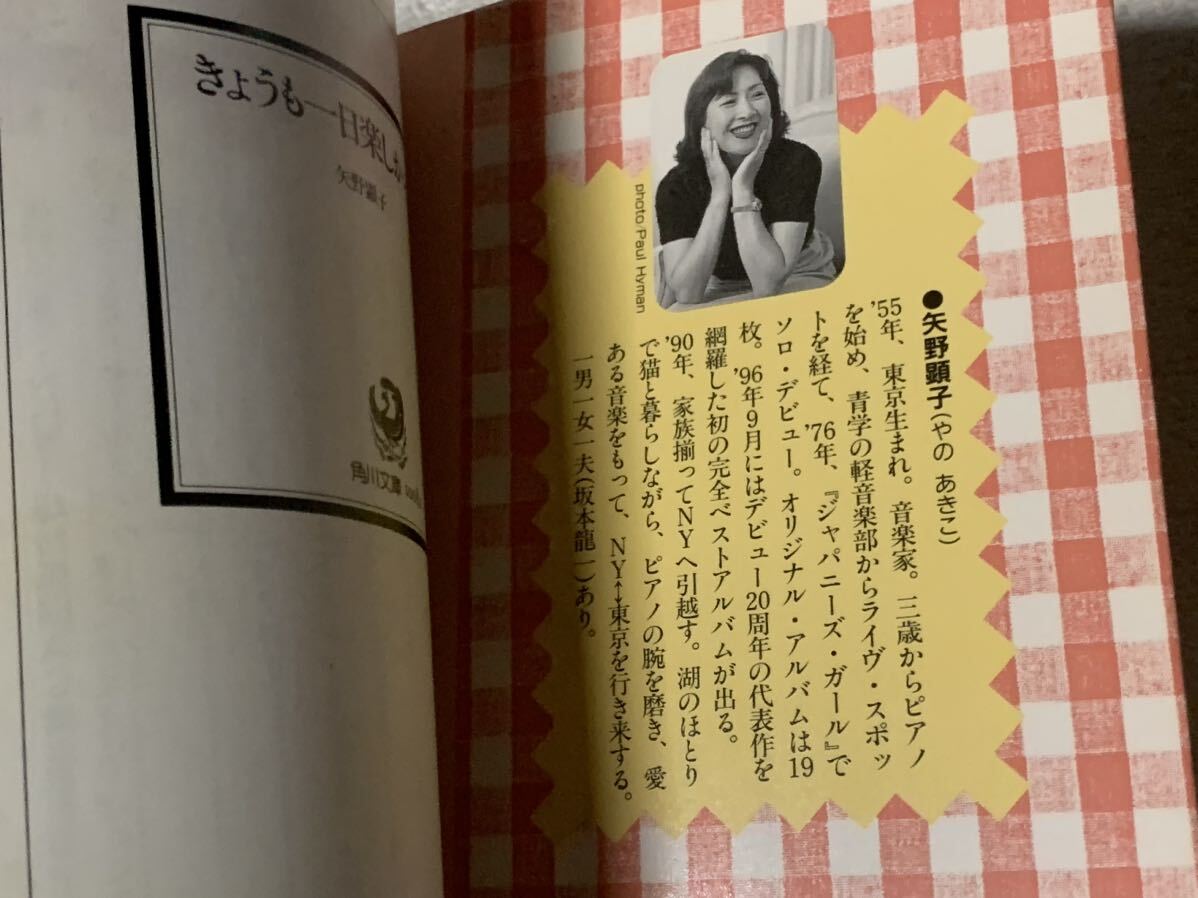 きょうも一日楽し
矢野顕子
角川文庫
photo/Paul Hyman
●矢野顕子(やの あきこ)
'55年、東京生まれ。音楽家。三歳からピアノ
を始め、青学の軽音楽部からライヴ・スポッ
トを経て、'76年、『ジャパニーズ・ガール』で
ソロ・デビュー。オリジナル・アルバムは19
枚。'96年9月にはデビュー20周年の代表作を
網羅した初の完全ベストアルバムが出る。
'90年、家族揃ってNYへ引越す。湖のほとり
で猫と暮らしながら、ピアノの腕を磨き、愛
ある音楽をもって、NY↔東京を行き来する。
一男一女一夫(坂本龍一)あり。